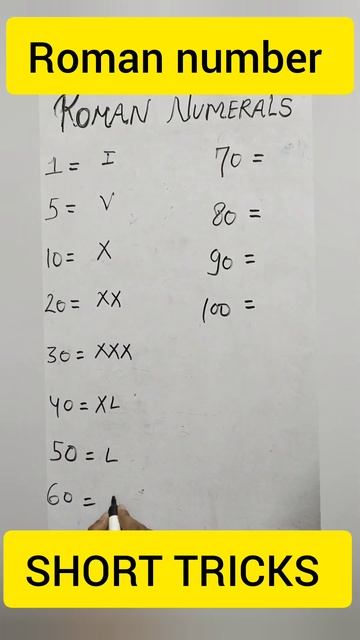 Roman number
ROMAN NUMERALS
1 = I
5 = V
10 = X
20 = XX
30 = XXX
40 = XL
50 = L
60 =
70 =
80 =
90 =
100 =
SHORT TRICKS